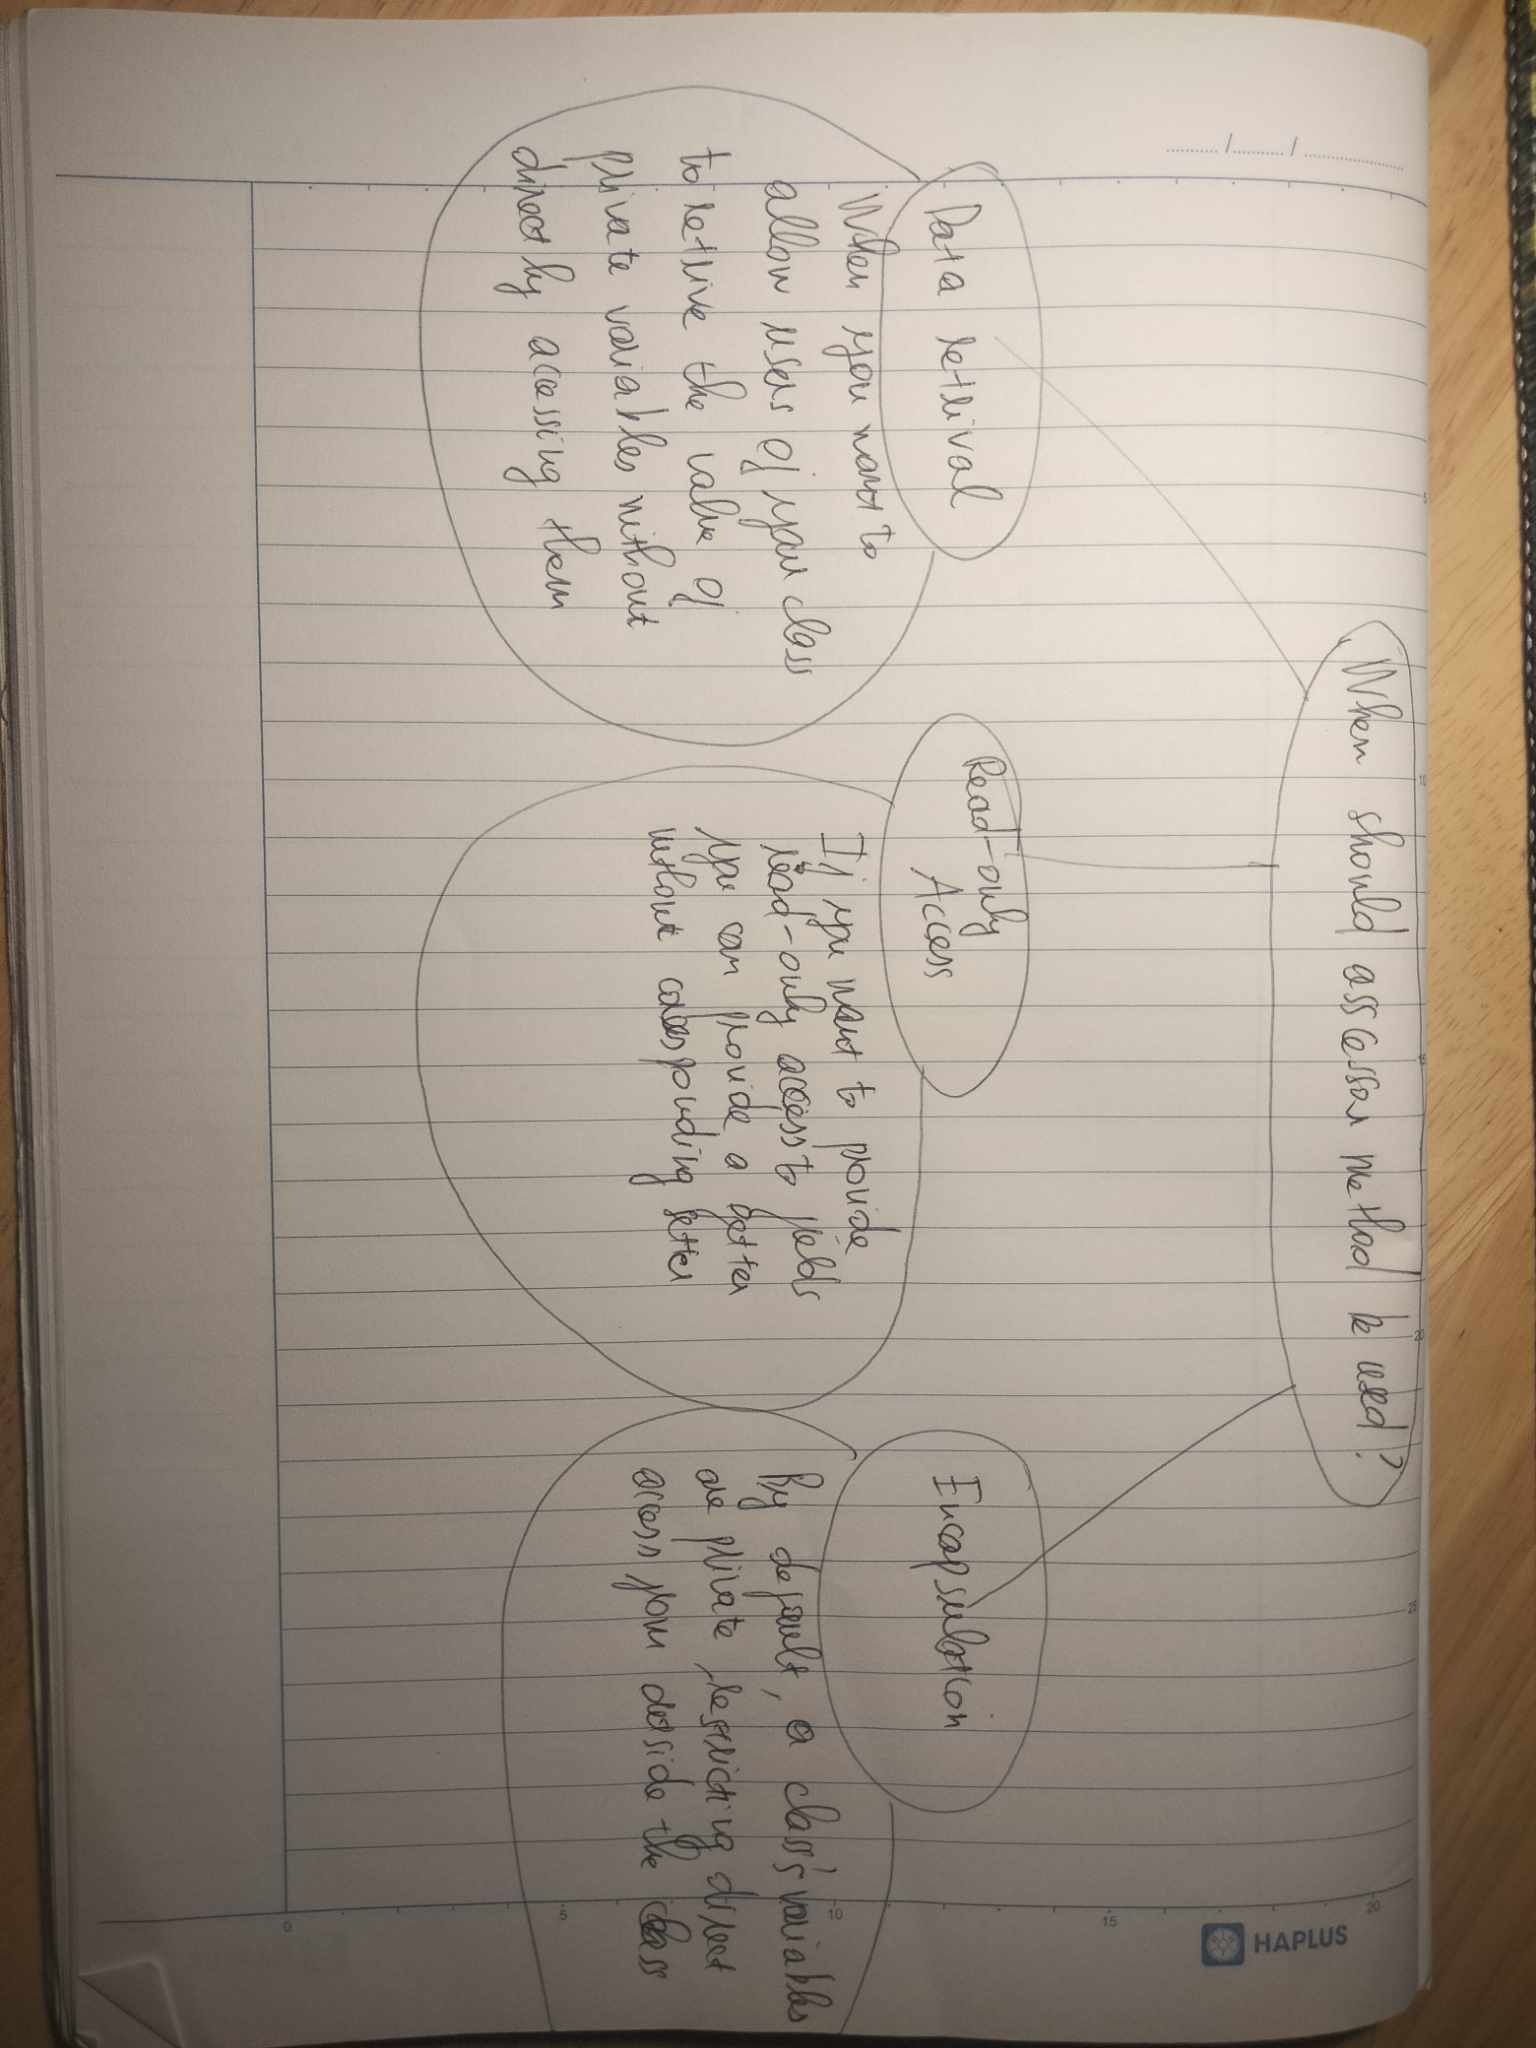 When should asscessor method be used?
Data retrival
When you want to
allow users of your class
to retrive the value of
private variables without
directly acessing them
Read-only
Access
If you want to provide
read-only access to fields
you can provide a getter
without corresponding setter
Encapsulation
By default, a class's variables
are private, restricting direct
access from outside the class
HAPLUS
10
15
20
25
20
15
10
5
0